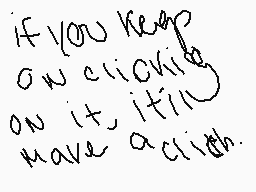 if you keep
on clicking
on it, it'll
make a